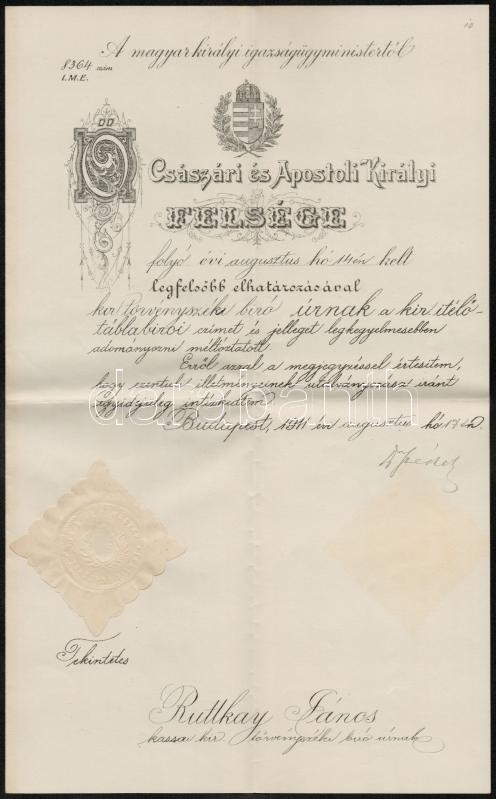 A magyar királyi igazságügyministertől
8364 szám
I.M.E.
Ő Császári és Apostoli Királyi
FELSÉGE
folyó évi augusztus hó 14én kelt
legfelsőbb elhatározásával
kir. törvényszéki biró úrnak a kir. itélő-
táblabirói czimet és jelleget legkegyelmesebben
adományozni méltóztatott.
Erről azzal a megjegyzéssel értesitem,
hogy ezentuli illetményeinek utalványozása iránt
egyidejüleg intézkedtem.
Budapest, 1911 évi augusztus hó 17én.
Tekintetes
Ruttkay János
kassai kir. törvényszéki biró úrnak